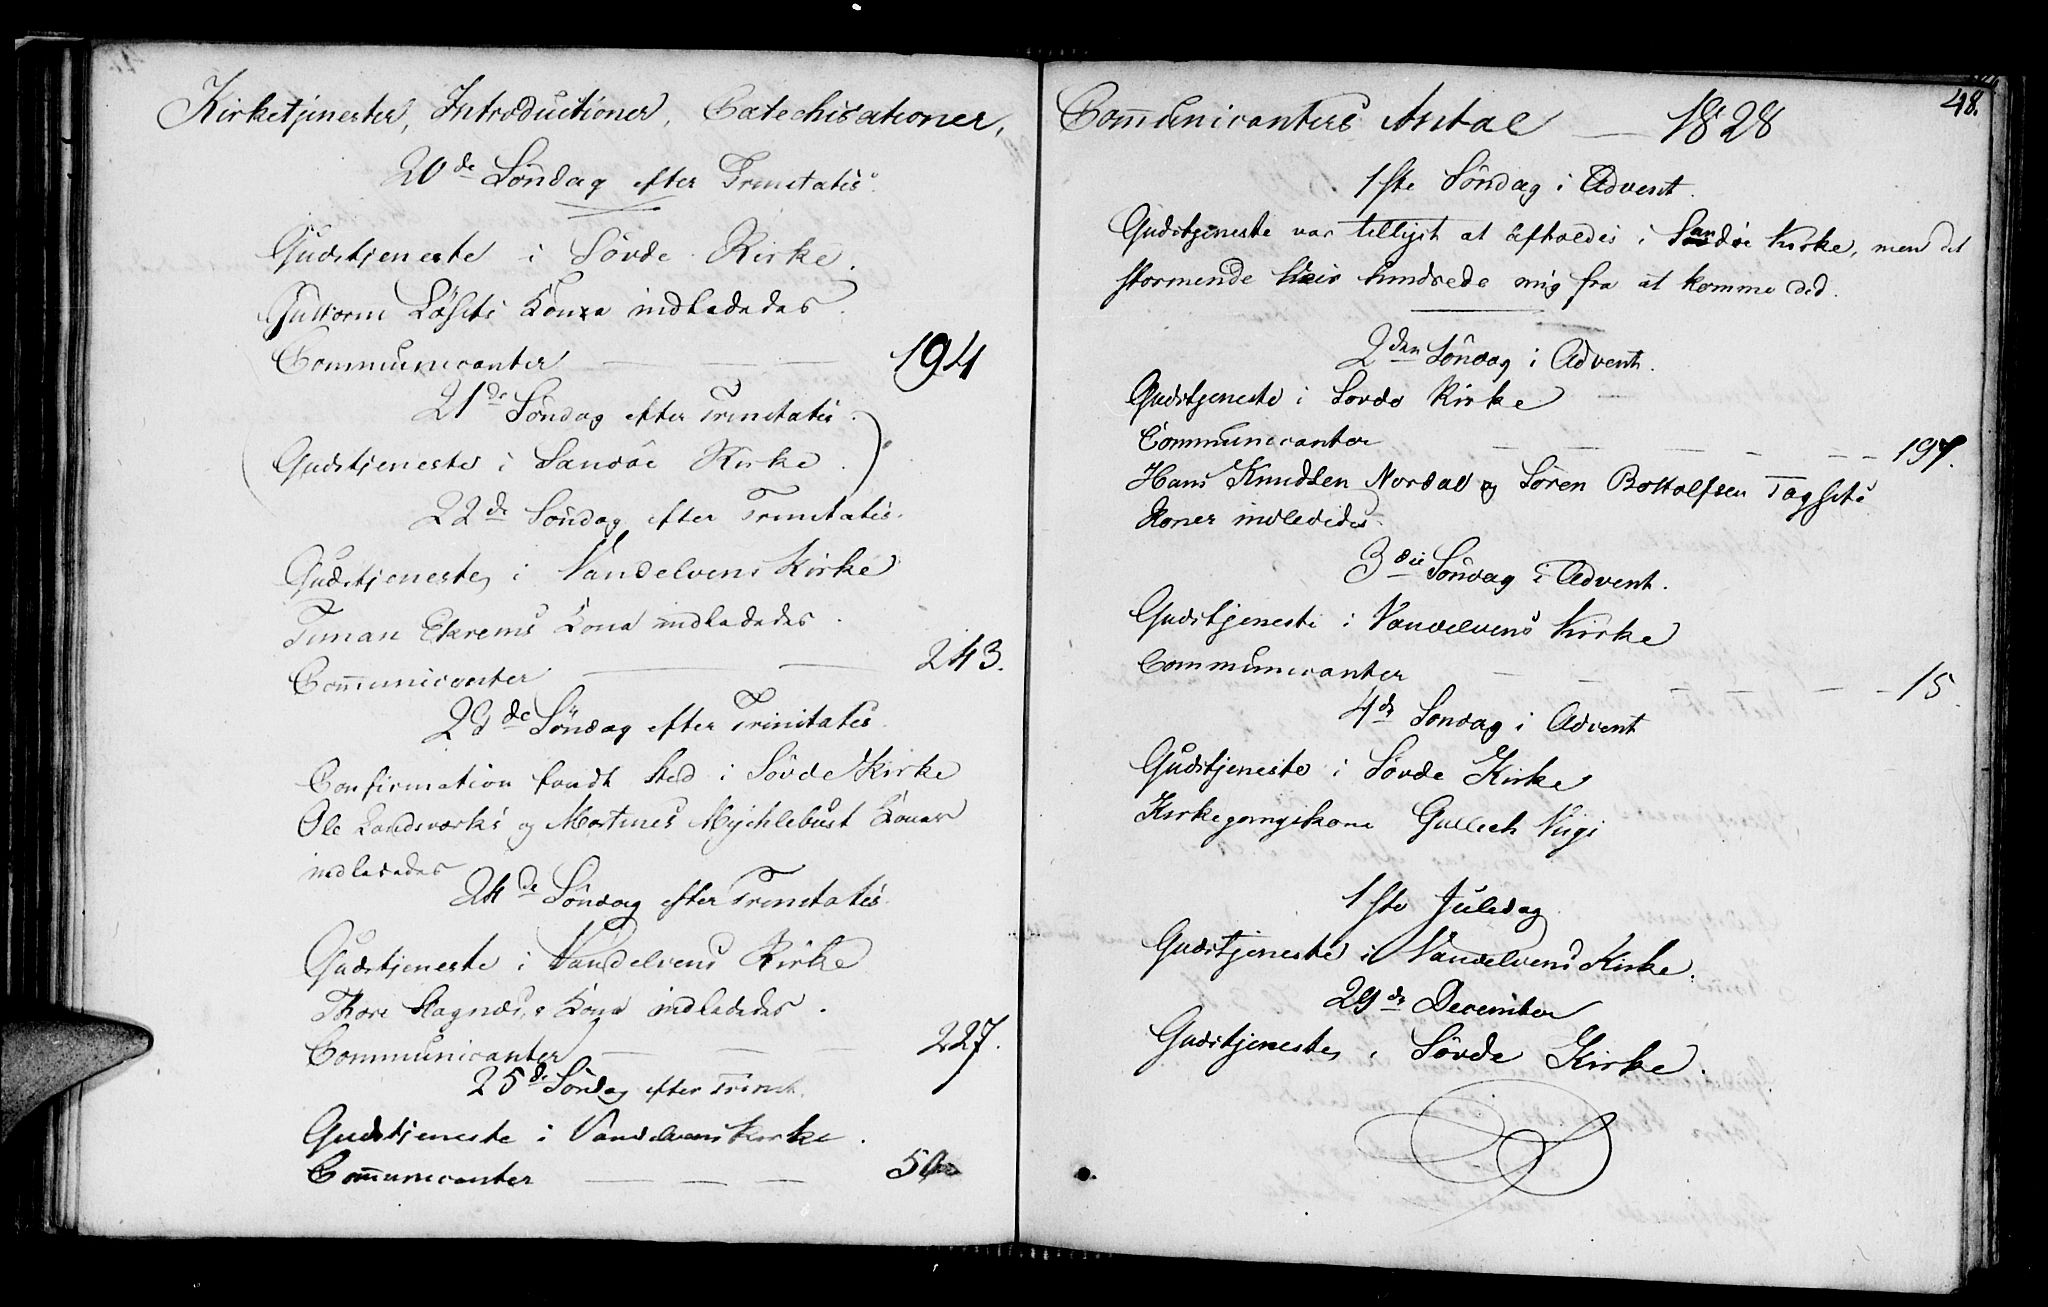 Kirketjenester, Introductioner, Catechisationer,
20de Söndag efter Trinitatis.
Gudstjeneste i Sövde Kirke.
Guttorm Lösets Kone indledades.
Communicanter 194
21de Söndag efter Trinitatis.
(Gudstjeneste i Sandöe Kirke.)
22de Söndag efter Trinitatis.
Gudstjeneste i Vandelvens Kirke
Timan Ekrems Kone indledades.
Communicanter 243.
23de Söndag efter Trinitatis.
Confirmation fandt Sted i Sövde Kirke
Ole Landsværks og Martinus Mychlebust Koner
indledades
24de Söndag efter Trinitatis.
Gudstjeneste i Vandelvens Kirke
Thore Slagnæs's Kone indledades.
Communicanter 227.
25de Söndag efter Trinit.
Gudstjeneste i Vandelvens Kirke.
Communicanter 50
48.
Communicanters Antal — 1828
1ste Söndag i Advent.
Gudstjeneste var tillyst at afholdes i Sandöe Kirke, men det
stormende Veir hindrede mig fra at komme did.
2den Söndag i Advent.
Gudstjeneste i Sovde Kirke
Communicanter 197.
Hans Knudsen Nordal og Sören Bottolfsen
Koner indledides.
3die Söndag i Advent.
Gudstjeneste i Vandelvens Kirke
Communicanter 15.
4de Sondag i Advent
Gudstjeneste i Sövde Kirke
Kirkegangskone Gullech
1ste Juledag
Gudstjeneste i Vandelvens Kirke.
29de December
Gudstjeneste i Sövde Kirke.